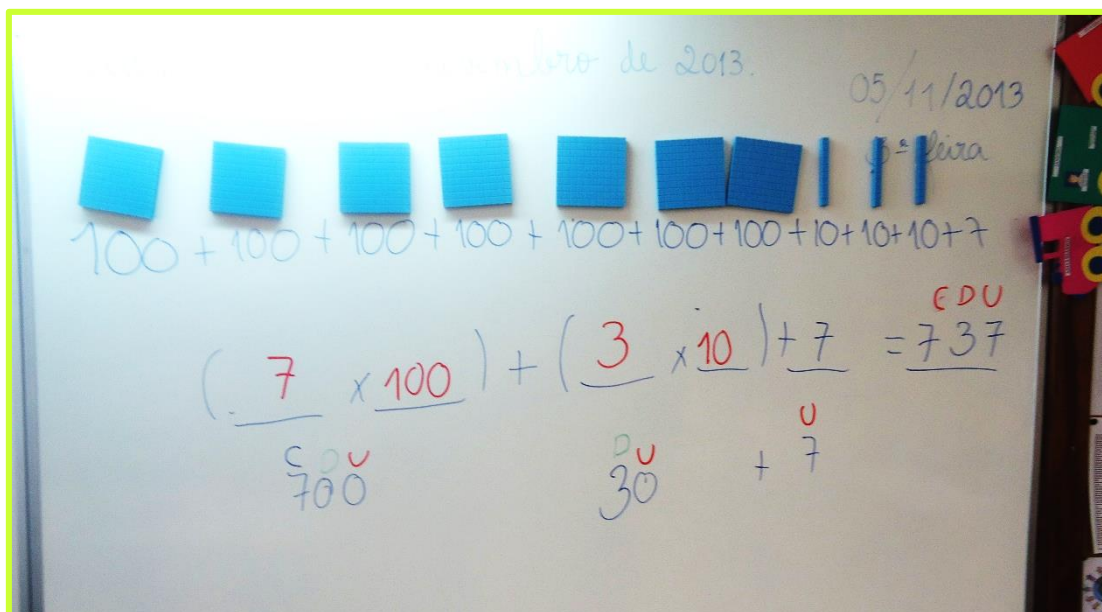 de 2013.
05/11/2013
feira
100 + 100 + 100 + 100 + 100 + 100 + 100 + 10 + 10 + 10 + 7
C D U
( 7 x 100 ) + ( 3 x 10 ) + 7 = 737
C D U D U U
700 30 + 7